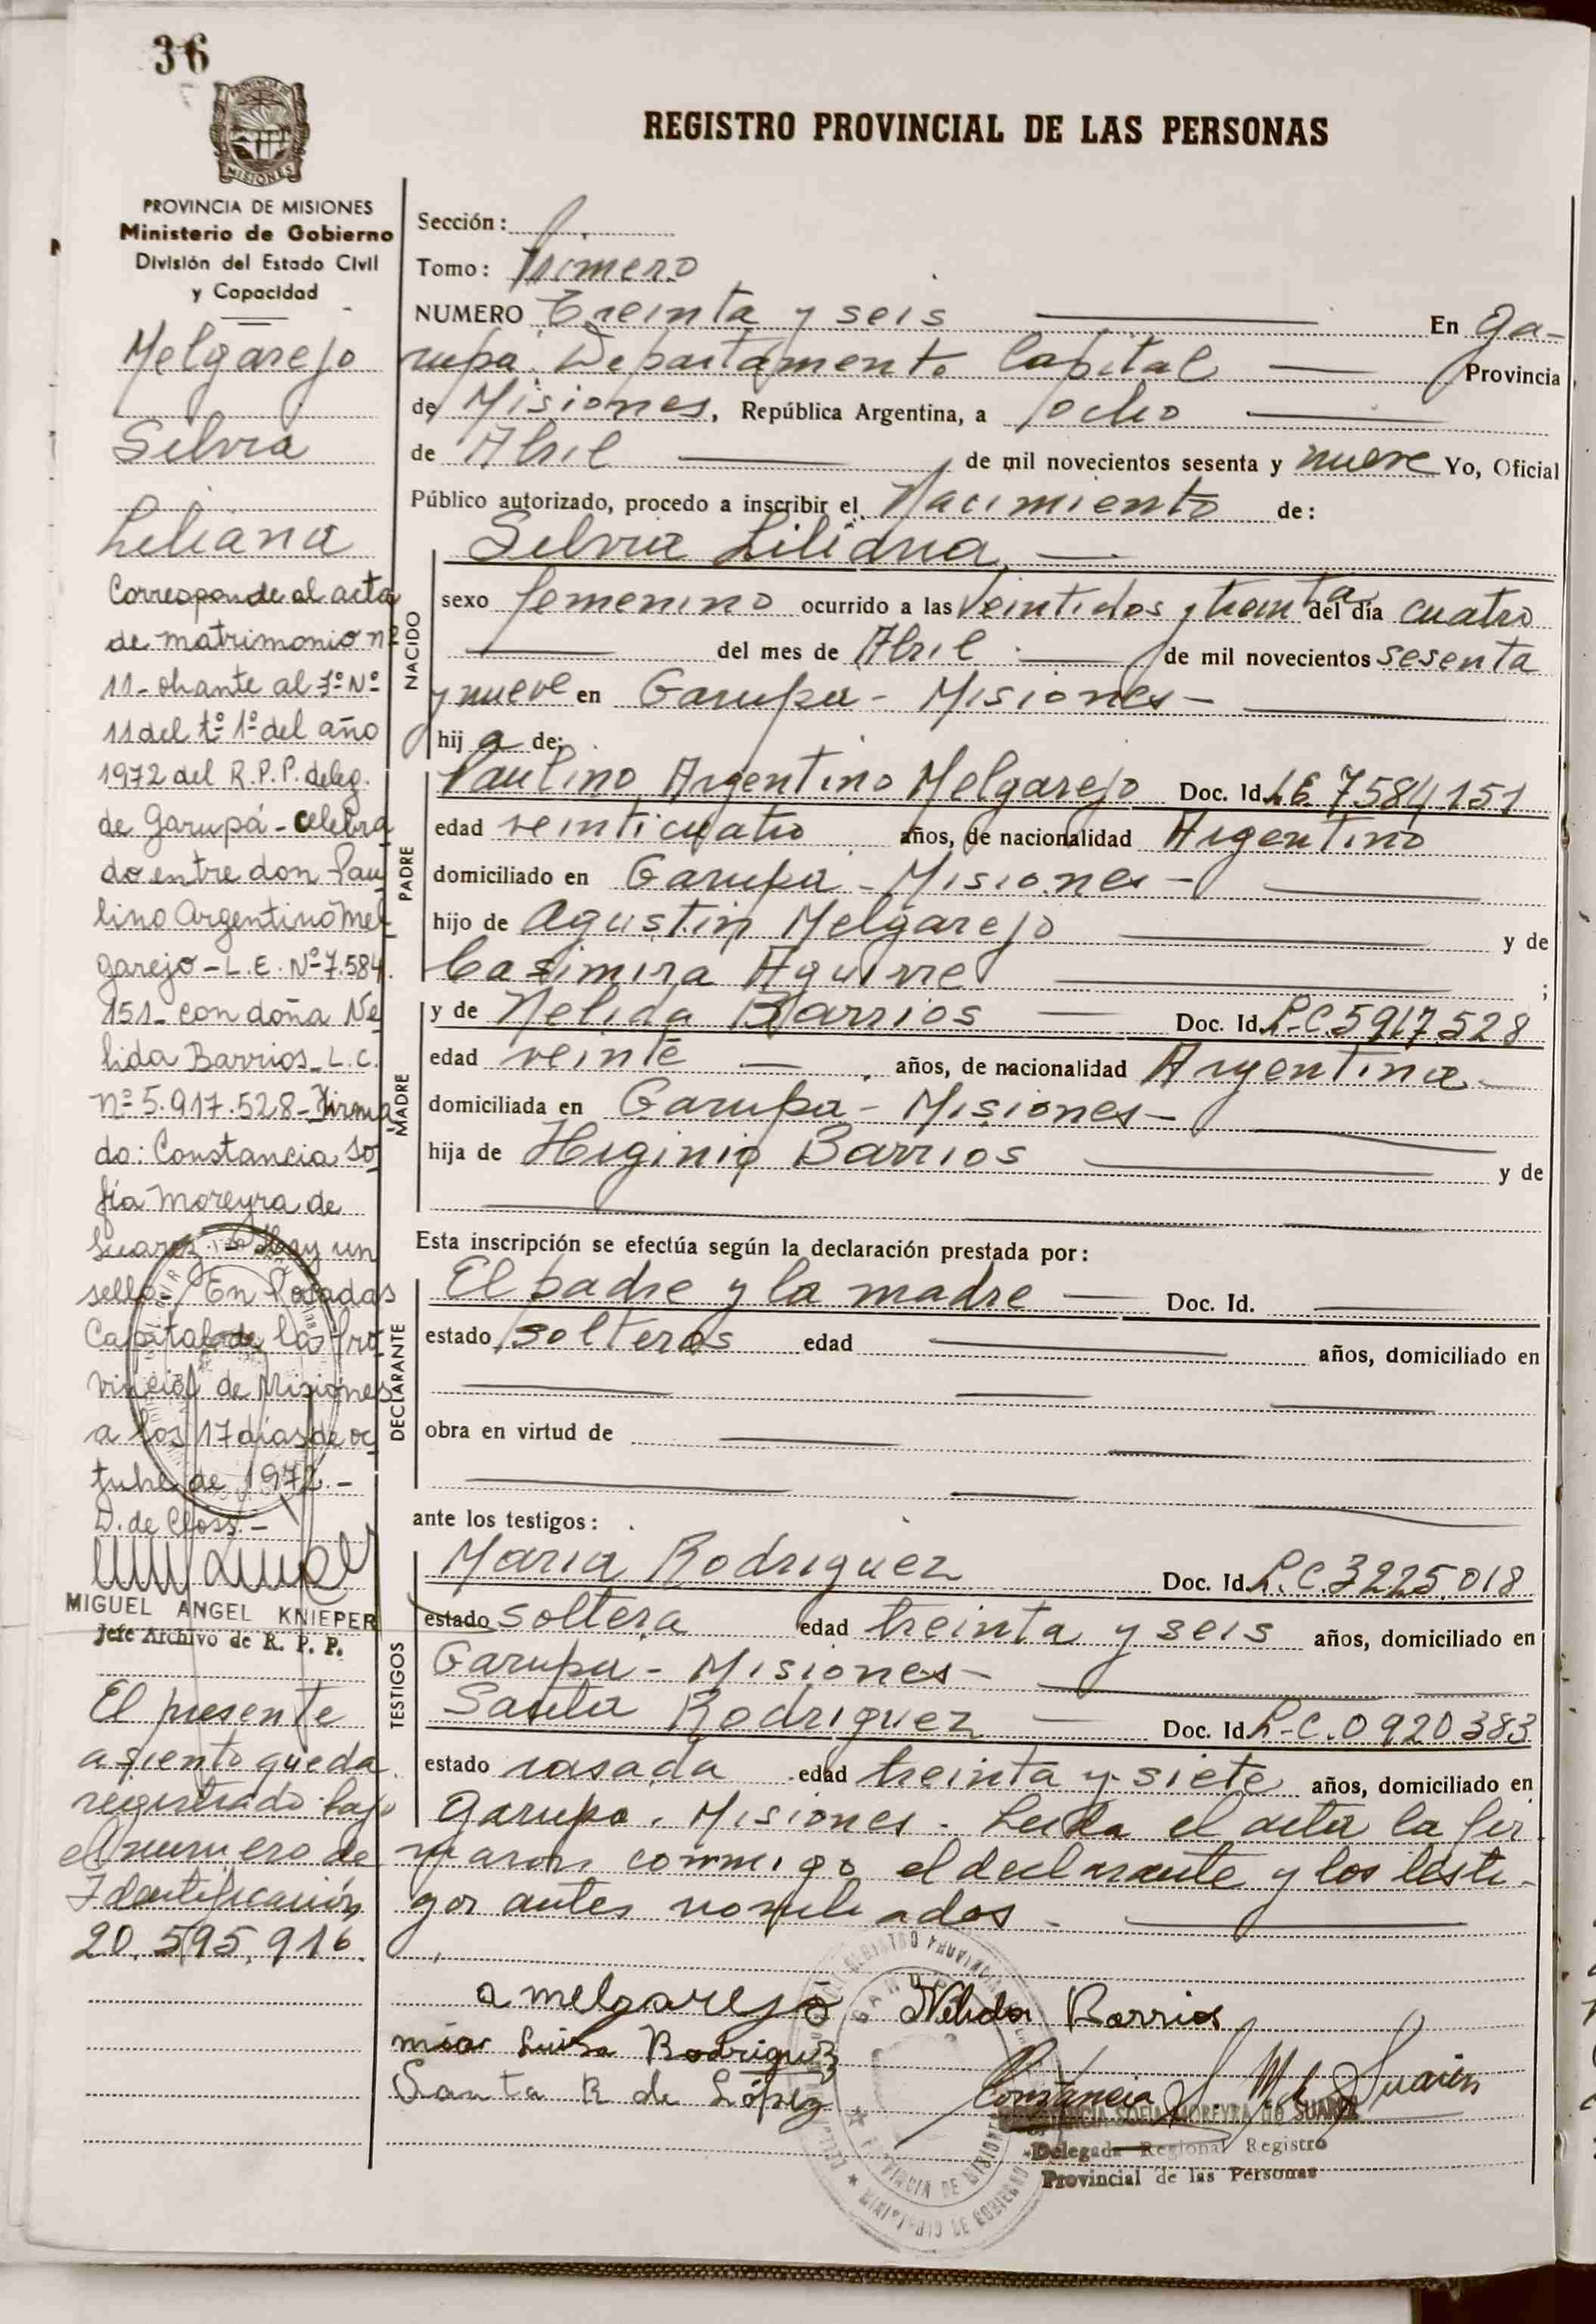 36
REGISTRO PROVINCIAL DE LAS PERSONAS
PROVINCIA DE MISIONES
Ministerio de Gobierno
División del Estado Civil
y Capacidad
Melgarejo
Silvia
Liliana
Corresponde al acta
de matrimonio nº
11- obrante al Fº Nº
11 del tº 1º del año
1972 del R.P.P. deleg.
de Garupá - celebra
do entre don Pau
lino Argentino Mel
garejo - L.E. Nº 7.584.
151 - con doña Ne
lida Barrios - L.C.
nº 5.917.528 - Firma
do: Constancia So
fía Moreyra de
Suarez - Hay un
sello - En Posadas
Capital de la Pro
vincia de Misiones
a los 17 días de oc
tubre de 1972.-
D. de Closs.-
MIGUEL ANGEL KNIEPER
Jefe Archivo de R. P. P.
El presente
asiento queda
registrado bajo
el numero de
Identificación
20.595.916
Sección:
Tomo: Primero
NUMERO Treinta y seis En Ga-
rupa. Departamento Capital Provincia
de Misiones, República Argentina, a ocho
de Abril de mil novecientos sesenta y nueve Yo, Oficial
Público autorizado, procedo a inscribir el Nacimiento de:
Silvia Liliana
NACIDO
sexo femenino ocurrido a las veintidos y treinta del día cuatro
del mes de Abril de mil novecientos sesenta
y nueve en Garupa - Misiones -
hij a de:
PADRE
Paulino Argentino Melgarejo Doc. Id. L.E. 7584151
edad veinticuatro años, de nacionalidad Argentino
domiciliado en Garupa - Misiones -
hijo de Agustin Melgarejo y de
Casimira Aguirre ;
MADRE
y de Nelida Barrios Doc. Id. L-C.5917528
edad veinte años, de nacionalidad Argentina
domiciliada en Garupa - Misiones -
hija de Higinio Barrios y de
Esta inscripción se efectúa según la declaración prestada por:
DECLARANTE
El padre y la madre Doc. Id.
estado solteros edad años, domiciliado en
obra en virtud de
ante los testigos:
TESTIGOS
Maria Rodriguez Doc. Id. L.C.3225.018
estado soltera edad treinta y seis años, domiciliado en
Garupa - Misiones -
Santa Rodriguez Doc. Id. L-C.0920.383
estado casada edad treinta y siete años, domiciliado en
Garupa. Misiones - Leida el acta la fir
maron conmigo el declarante y los testi-
gos antes nombrados -
a melgarejo Nelida Barrios
Luisa Rodriguez
Santa R de López Constancia S. M de Suarez
CONSTANCIA SOFIA MOREYRA de SUAREZ
Delegada Regional Registro
Provincial de las Personas